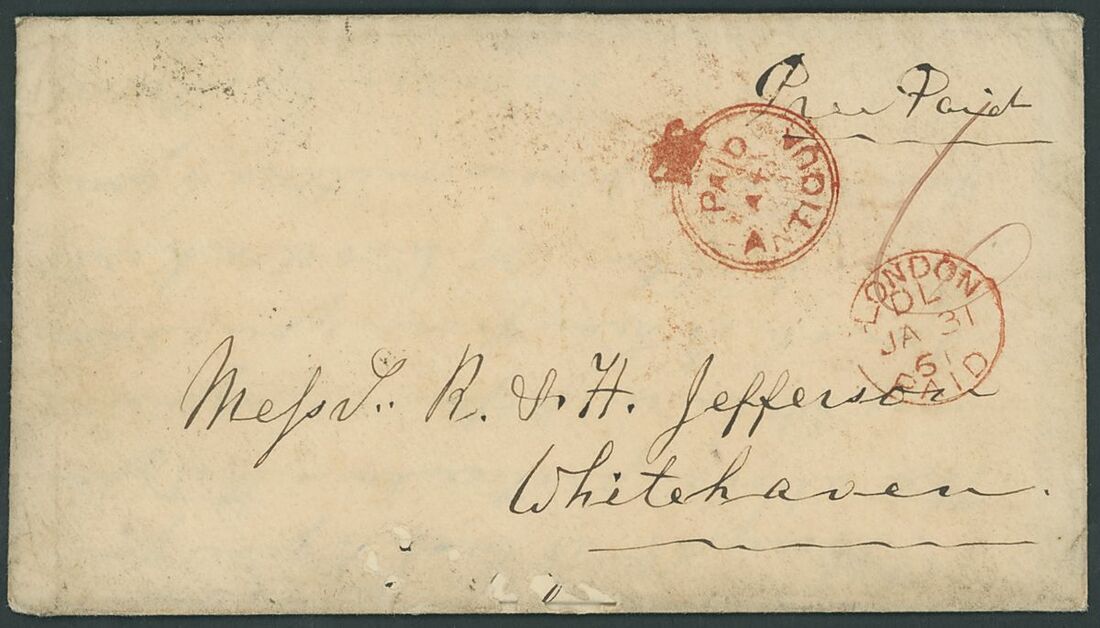 Pre Paid
PAID
ANTIGUA
LONDON
DL
JA 31
61
PAID
Messrs. R. & H. Jefferson
Whitehaven.